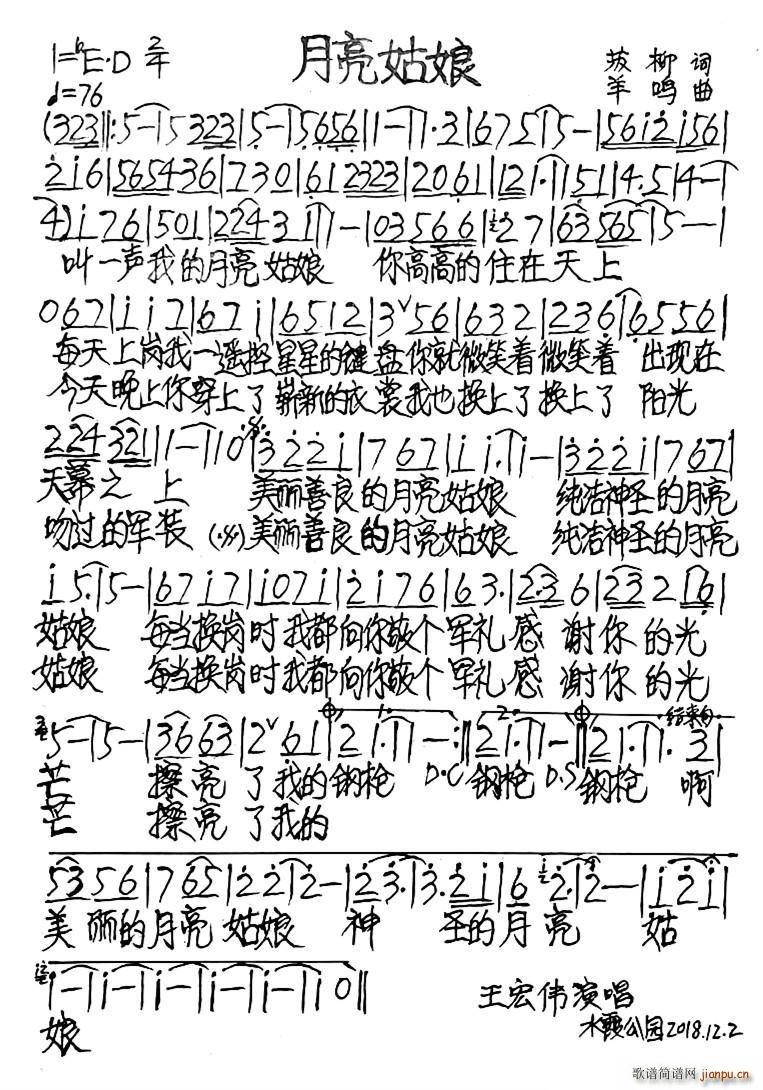 月亮姑娘
1=ᵇE·D 2/4
♩=76
柳 词
羊 鸣 曲
(323‖:5-|5 323|5-|5656|1-|1·3|675|5-|561216|
216|565436|730|612323|2061|121·|51|4·5|4-|
4)176|501|22431|1-|03566|27|63565|5-|
叫一声我的月亮姑娘 你高高的住在天上
067|117|671|6512|3ˇ56|632|2236|6556|
每天上岗我一遥控星星的键盘你就微笑着微笑着 出现在
今天晚上你穿上了崭新的衣裳我也换上了换上了 阳光
224321|1-|10|3221|767|11·|1-|3221|767|
天幕之上 美丽善良的月亮姑娘 纯洁神圣的月亮
吻过的军装 美丽善良的月亮姑娘 纯洁神圣的月亮
15·|5-|6717|1071|2176|63·|236|23216|
姑娘 每当换岗时我都向你敬个军礼感谢你的光
姑娘 每当换岗时我都向你敬个军礼感谢你的光
1. 2. 结束句
5-|5-|3663|2ˇ61|21·|1-:‖21·|1-‖21·|1·3|
芒 擦亮了我的钢枪 D.C 钢枪 D.S 钢枪 啊
芒 擦亮了我的
5356|765|22|2-|23·|3·21|6 2·|2--|121|
美丽的月亮姑娘 神 圣的月亮 姑
1-|1-|1-|1-|1-|10‖
娘
王宏伟演唱
水霞公园2018.12.2
歌谱简谱网
jianpu.cn